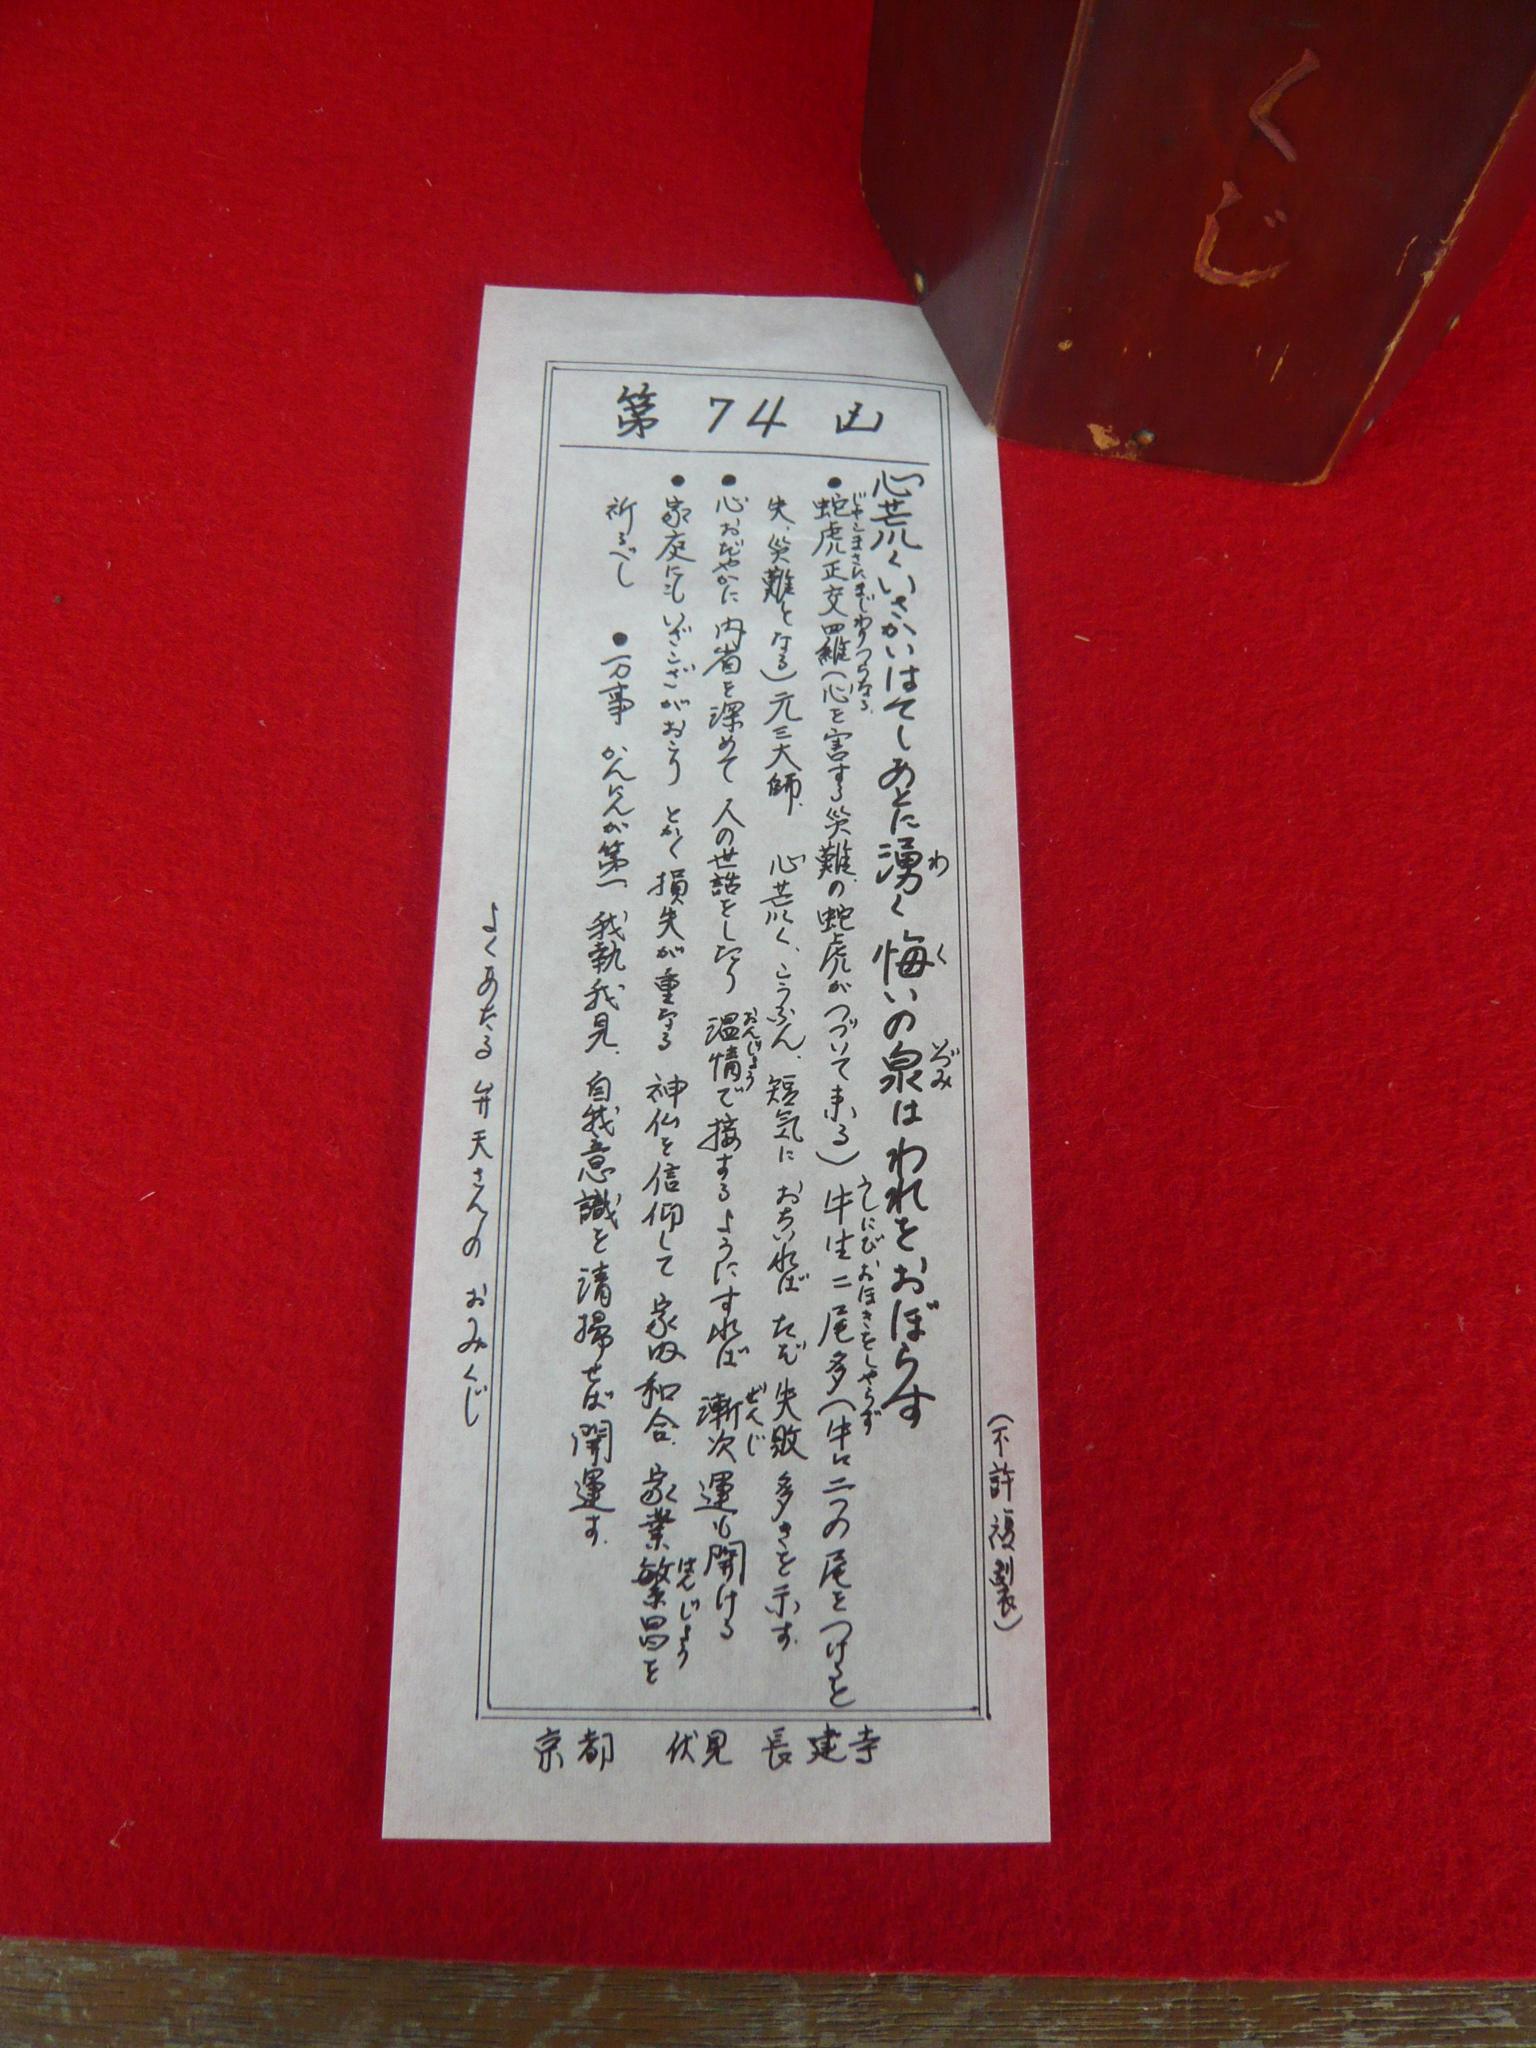 くじ
第 74 凶
心荒くいさかいはてしあとに湧く悔いの泉はわれをおぼらす
わ
く
いづみ
●蛇虎正交四維(心を害する災難の蛇虎がつづいて来る)牛生二尾多(牛に二つの尾をつけると
失、災難となる)元三大師、 心荒く、こうふん、短気に おちいれば たゞ失敗 多きを示す、
●心おだやかに 内省を深めて 人の世話をしなり 温情で接するようにすれば 漸次運も開ける
おんじょう
ぜんじ
●家庭にもいざこざがおこり とかく損失が重なる 神仏を信仰して 家内和合、家業繁昌を
はんじょう
祈るべし ●万事 かんにんが第一 我執我見、自我意識を清掃せば開運す、
よくあたる 弁天さんの おみくじ
(不許複製)
京都 伏見 長建寺